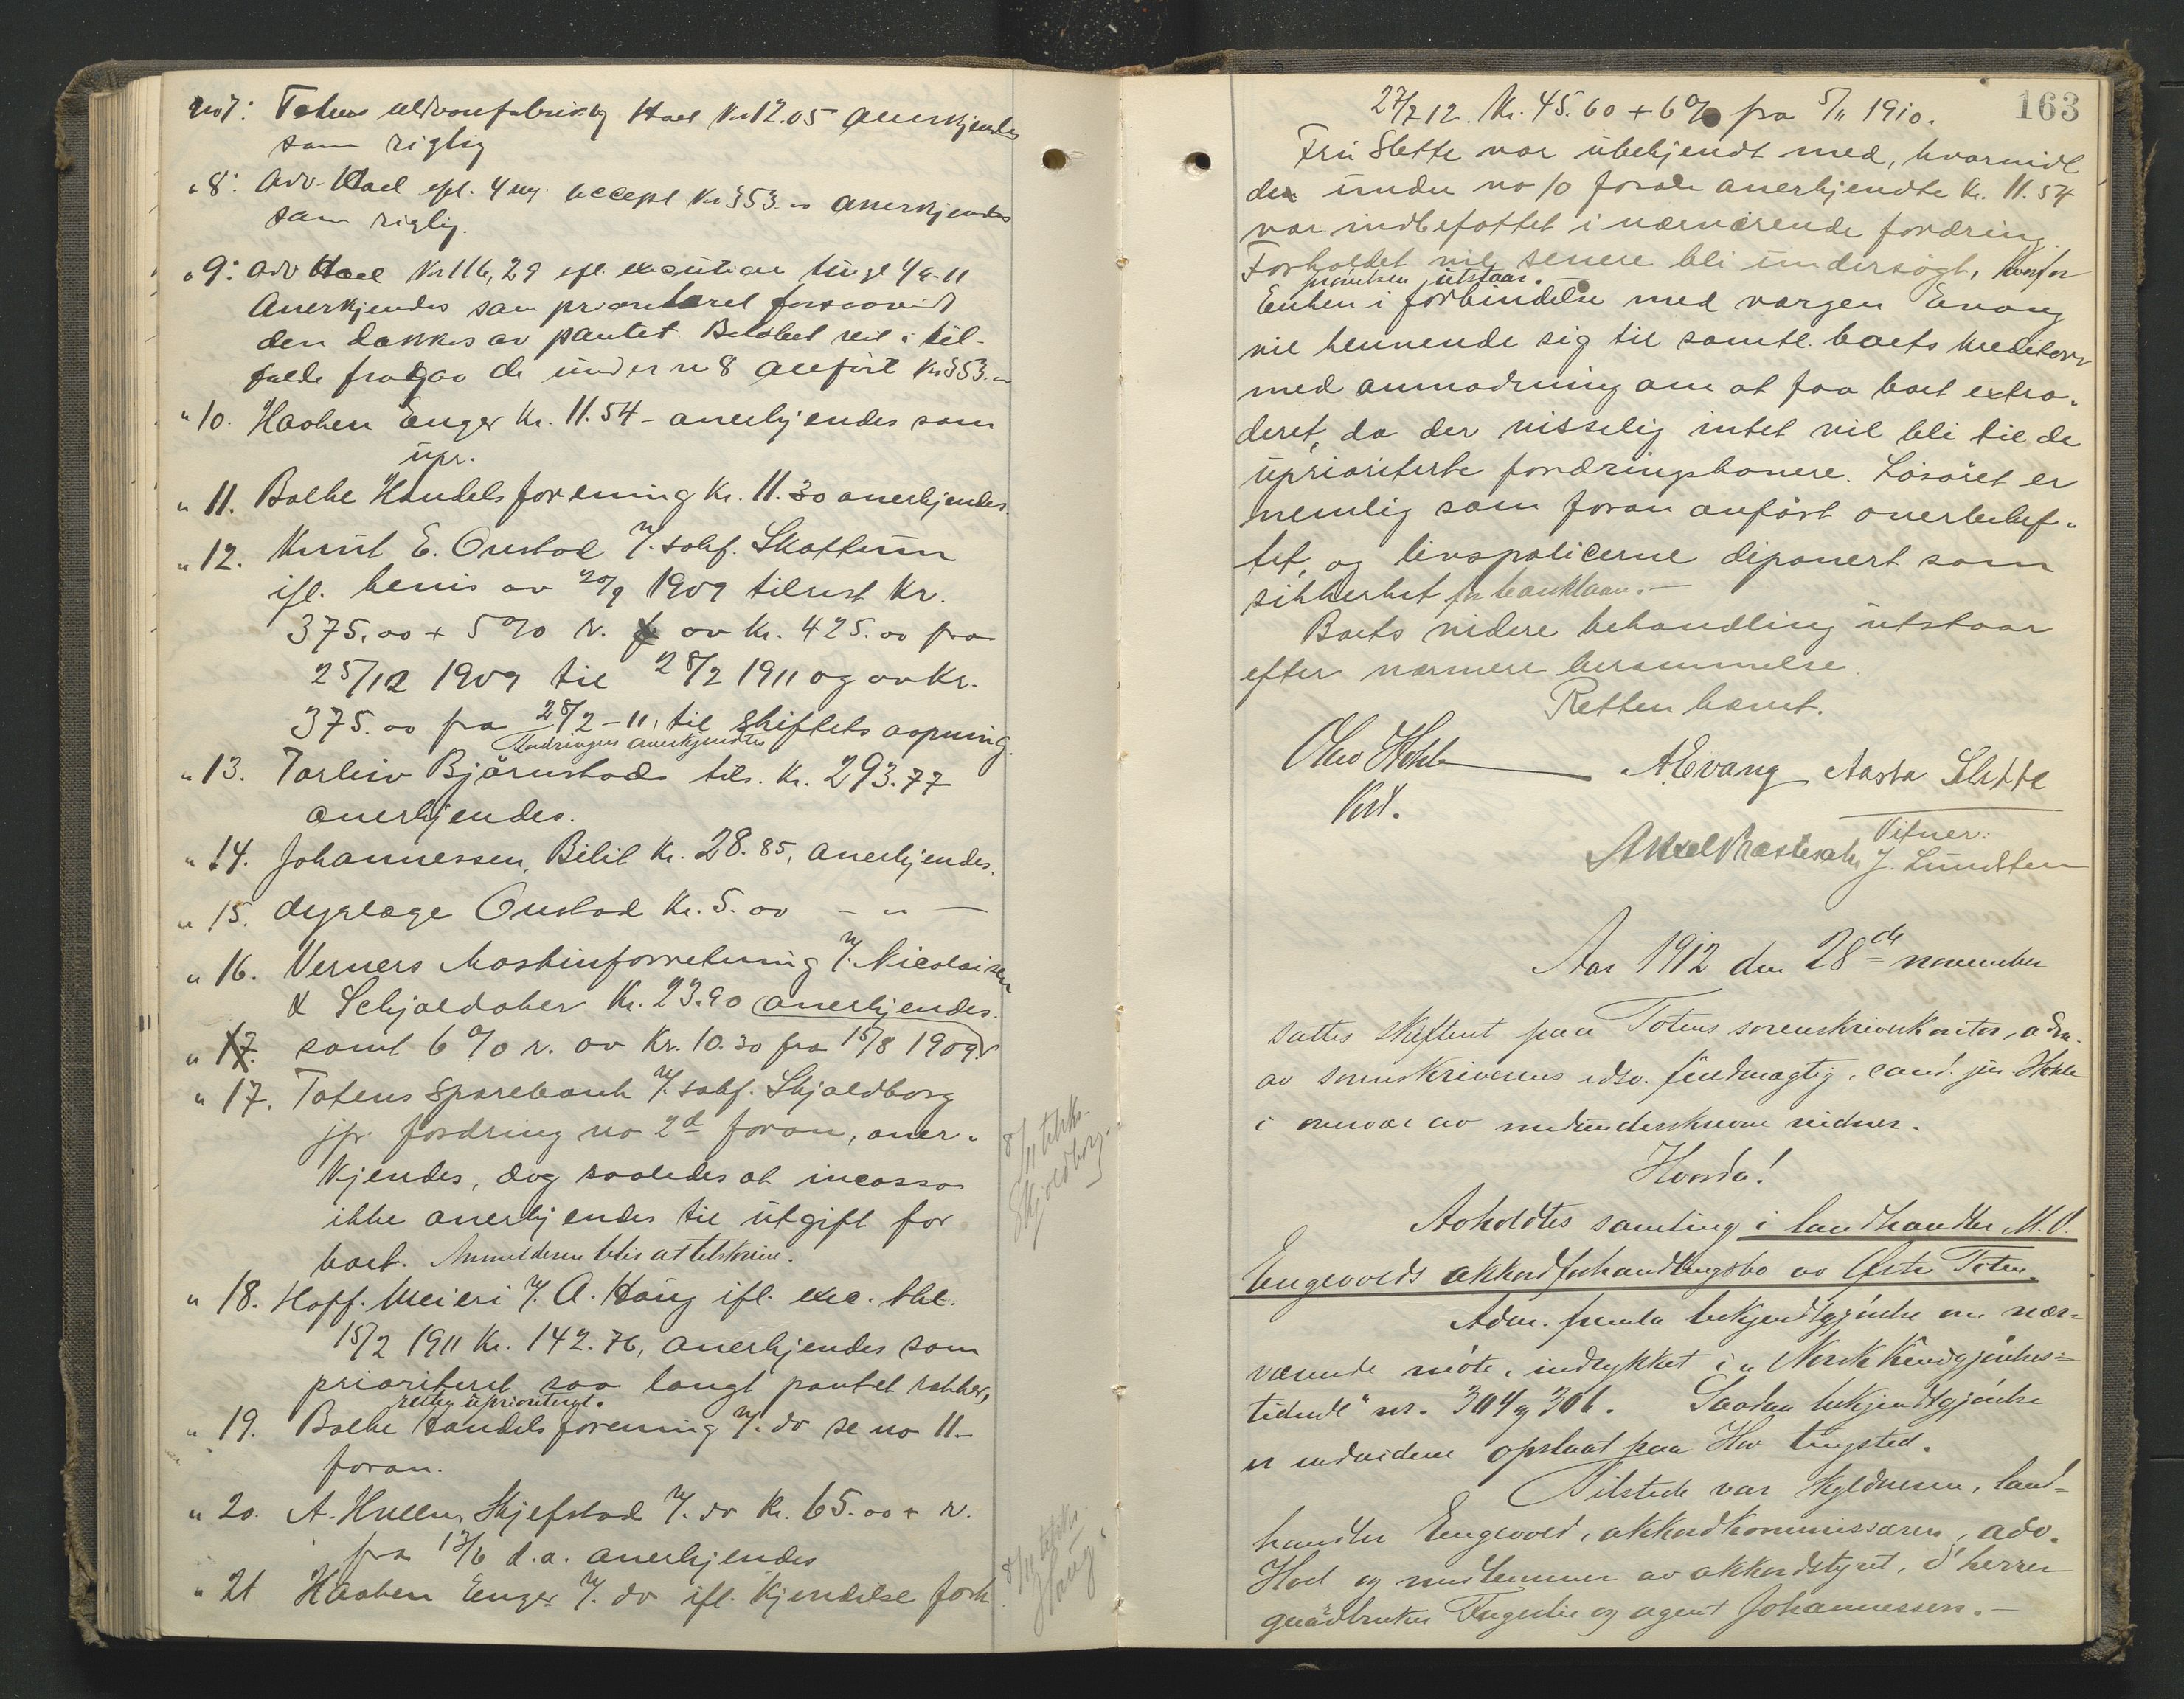 no 7: Totens uldvarefabrik v/ Hoel Kr 12.05 anerkjendes
som rigtig
" 8: Adv. Hoel efl. 4 ug. accept Kr 353.00 anerkjendes
som rigtig.
" 9: Adv Hoel Kr 116,29 efl. execution tingl 4/9-11
Anerkjendes som prioriteret forsaavidt
den dækkes av pantet. Beløbet vil i til-
fælde fragaa de under nr 8 anført Kr 353.00
" 10. Haaken Enger Kr. 11.54 - anerkjendes som
upr.
" 11. Bølbe Handelsforening Kr. 11.30 anerkjendes.
" 12. Knut E. Onstad v/. sakf. Skattum
ifl. bevis av 20/9 1909 tilrest Kr.
375.00 + 5 % r. av Kr. 425.00 fra
25/12 1909 til 28/2 1911 og av Kr.
375.00 fra 28/2 - 11, til skiftets aapning.
Fordringen anerkjendtes
" 13. Torleiv Björnstad tils. Kr. 293.77
anerkjendes.
" 14. Johannessen, Bilit Kr. 28.85, anerkjendes.
" 15. dyrlæge Onstad Kr. 5.00 - " -
" 16. Verners Maskinforretning v/. Nicolaisen
& Schjoldaker Kr. 23.90 anerkjendes.
" 17. samt 6 % r. av Kr. 10.30 fra 15/8 1909
" 17. Totens Sparebank v/. sakf. Skjoldborg
jfr. fordring no 2d foran, aner-
kjendes, dog saaledes at incasso
ikke anerkjendes til utgift for
boet. Anmelderen blir at tilskrive.
8/11 tilskr.
Skjoldborg.
" 18. Hoff Meieri v/. A. Haug ifl. exe. tkl.
15/2 1911 Kr. 142.76, anerkjendes som
prioriteret saa langt pantet rækker,
resten uprioritert.
" 19. Bølbe Handelsforening v/. do se no 11 -
foran.
" 20. A. Hveem, Skjefstad v/. do Kr. 65.00 + r.
fra 13/6 d.a. anerkjendes
8/11 tilskr.
Haug
" 21 Haaken Enger v/. do ifl. kjendelse fork
163
27/2 12. Kr. 45.60 + 6 % fra 5/11 1910.
Fru Slette var ubekjendt med, hvorvidt
den under no 10 foran anerkjendte Kr. 11.54
var indbefattet i nærværende fordring.
Forholdet vil senere bli undersøgt, hvorfor
prøvelsen utstaar.
Enken i forbindelse med værgen Evang
vil henvende sig til samtl. boets kreditorer
med anmodning om at faa boet extra-
deret, da der visselig intet vil bli til de
uprioriterte fordringshavere. Løsøret er
nemlig som foran anført overbehef-
tet, og livspolicerne diponert som
sikkerhet for banklaan. -
Boets videre behandling utstaar
efter nærmere berammelse.
Retten hævet.
Olav Hohle
Kst.
A. Evang Aasta Slette
Vitner:
Aksel Præstesæter J. Lundsten
Aar 1912 den 28de november
sattes skifteret paa Totens sorenskriverkontor, adm.
av sorenskriverens edsv. fuldmægtig, cand. jur Hohle
i overvær av medunderskrevne vidner.
Hvorda!
Avholdtes samling i landhandler M. O.
Engevolds akkordforhandlingsbo av Østre Toten.
Adm. fremla bekjendtgjørelse om nær-
værende møte, indrykket i "Norsk Kundgjørelses-
tidende" nr. 304 og 306. Saadan bekjendtgjørelse
er endvidere opslaat paa Hov tingsted.
Tilstede var skyldneren, land-
handler Engevold, akkordkommissæren, adv.
Hoel og medlemmer av akkordstyret, d'herrer
gaardbruker Fugerlie og agent Johannessen. -